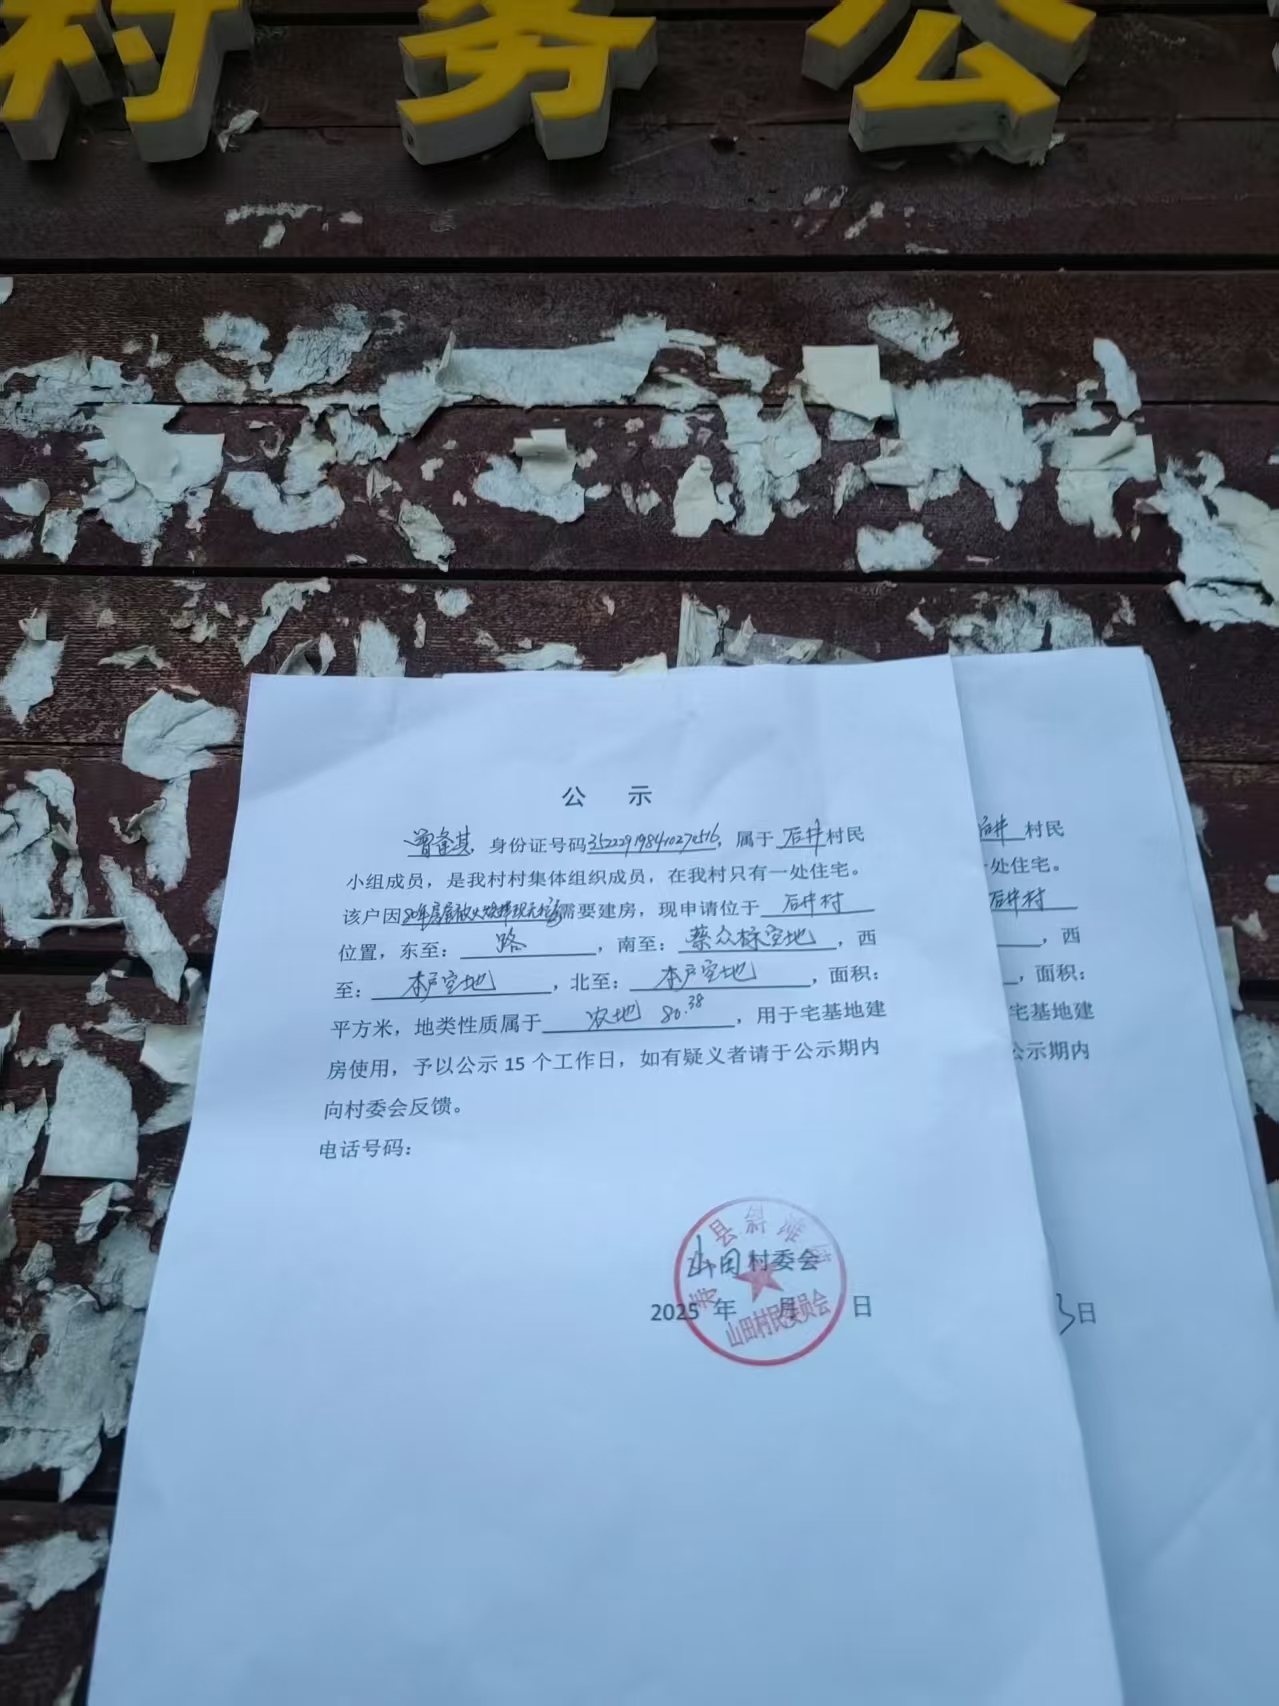 村务公
公 示
曾奋其，身份证号码352229198410270516，属于后井村民
小组成员，是我村村集体组织成员，在我村只有一处住宅。
该户因80年房屋被火烧掉现无房需要建房，现申请位于 后井村
位置，东至： 路 ，南至：蔡众标空地，西
至： 本户空地 ，北至： 本户空地 ，面积：
平方米，地类性质属于 农地 80.38 ，用于宅基地建
房使用，予以公示 15 个工作日，如有疑义者请于公示期内
向村委会反馈。
电话号码：
县斜滩
山田村委会
2025 年 月 日
山田村民委员会
后井村民
处住宅。
后井村
，西
，面积：
宅基地建
公示期内
3日